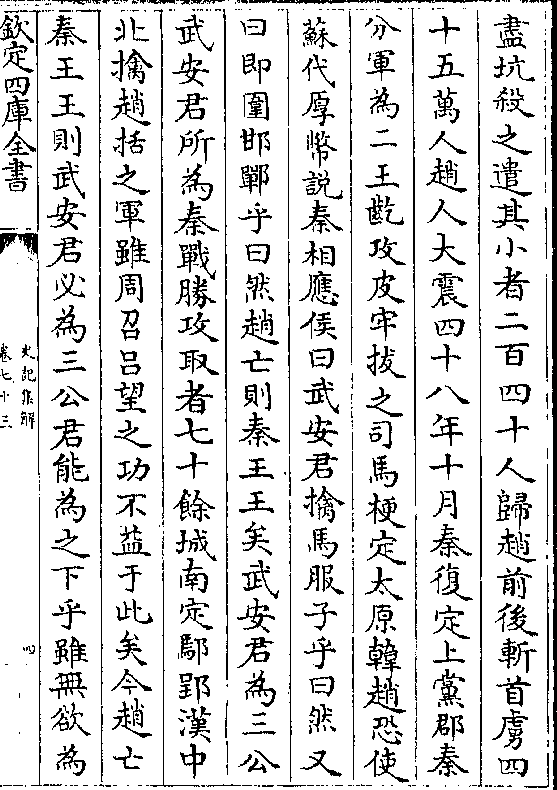 盡坑殺之遣其小者二百四十人歸趙前後斬首虜四
十五萬人趙人大震四十八年十月秦復定上黨郡秦
分軍為二王齕攻皮牢拔之司馬梗定太原韓趙恐使
蘇代厚幣說秦相應侯曰武安君擒馬服子乎曰然又
曰即圍邯鄲乎曰然趙亡則秦王王矣武安君為三公
武安君所為秦戰勝攻取者七十餘城南定鄢郢漢中
北擒趙括之軍雖周召呂望之功不益于此矣今趙亡
秦王王則武安君必為三公君能為之下乎雖無欲為
欽定四庫全書
史記集解
卷七十三
四